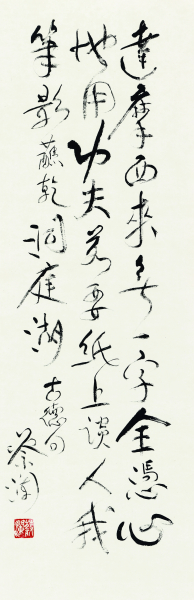 達摩西來無一字全憑心
地用功夫若要紙上談人我
筆影蘸乾洞庭湖
古德句
蔡瀾